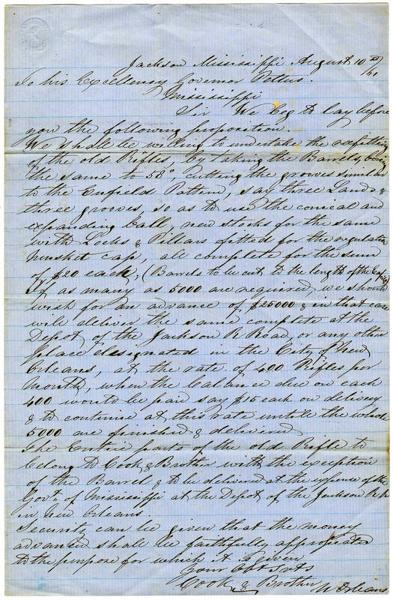 Jackson Mississippi August 10th /61
To his Excellency Governor Pettus.
Mississippi
Sir We Beg to lay before
you the following proposition.
We shall be willing to undertake the refitting
of the old Rifles by taking the Barrels, boring
the same to 58° cutting the grooves similar
to the Enfield Pattern, say three Lands &
three grooves, so as to use the conical and
expanding ball, new stocks for the same
with Locks & fitted for the regulation
musket cap, all complete for the sum
of $20 each, (Barrels to be cut to the length of the
If as many as 5000 are required, we should
wish for an advance of $25000 & in that case
will deliver the same complete at the
Depot of the Jackson R Road or any other
place designated in the City of New
Orleans, at the rate of 400 Rifles per
Month, when the balance due on each
400 is to be paid say $15 each on delivery
& to continue at this rate until the whole
5000 are finished & delivered.
The Entire parts of the old Rifle to
belong to Cook & Brother with the exception
of the Barrel & to be delivered at the expense of the
Govt. of Mississippi at the Depot of the Jackson R R
in New Orleans.
Security can be given that the money
advanced shall be faithfully appropriated
to the purpose for which it is given
Your Obt Svts
Cook & Brother
N Orleans